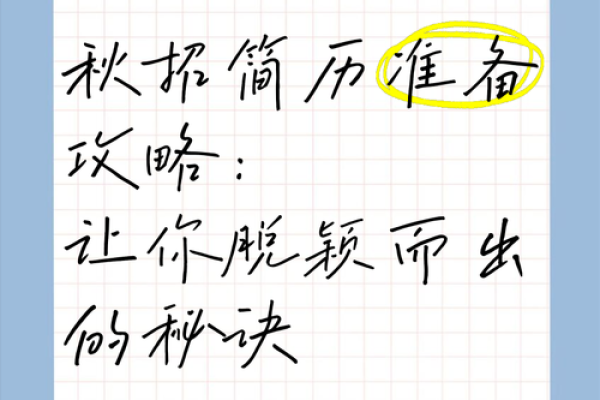 秋招简历准备
攻略：
让你脱颖而出
的秘诀